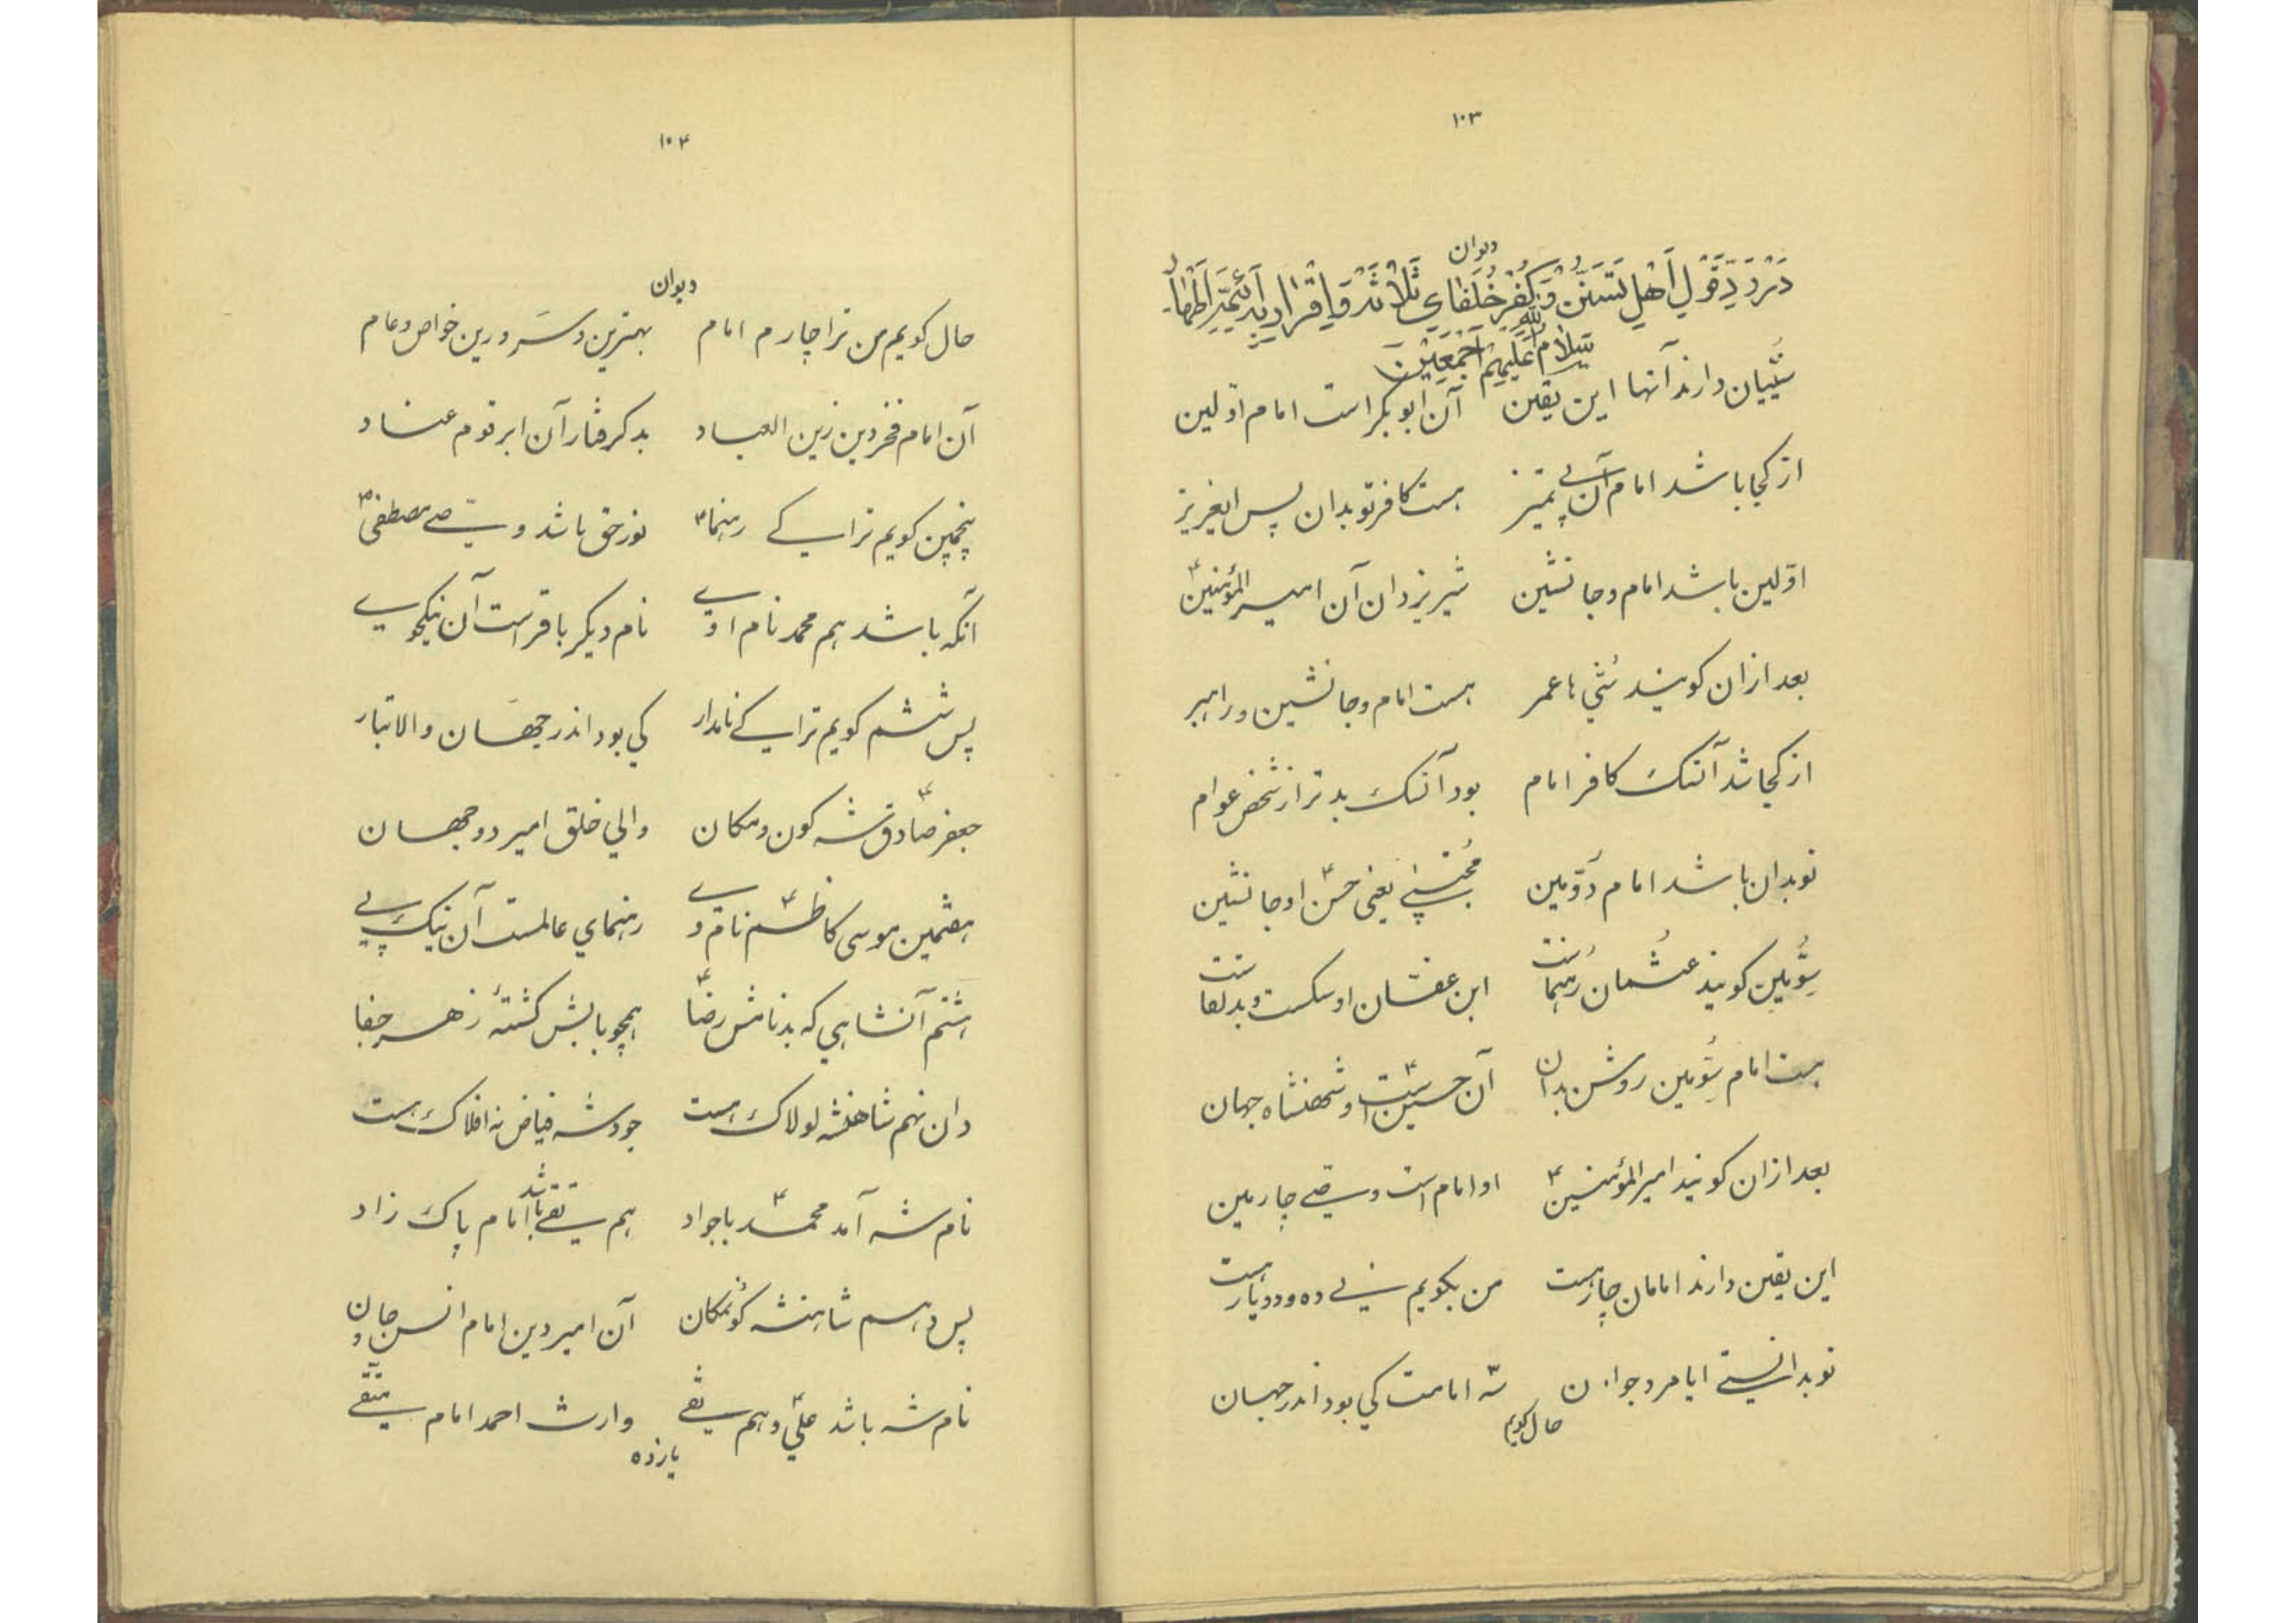 ۱۰۳
دیوان
دَرْ رَدِّ قَوْلِ اَهْلِ تَسَنُّنْ وَ کُفْرِ خُلَفٰایِ ثَلاثَه وَ اِقْرٰار بِه اَئِمَّهِ اَطْهٰار
سَلامُ اللهِ عَلَیْهِمْ اَجْمَعِیْنَ
سُنّیان دارند آنها این یقین آن ابوبکر است امام اوّلین
از کجا باشد امام آن بی تمیز هست کافر تو بدان پس ایعزیز
اوّلین باشد امام و جانشین شیر یزدان آن امیر المؤمنین ۴
بعد ازان کویند سُنّی با عمر هست امام و جانشین و راهبر
از کجا شد آنسک کافر امام بود آنسک بدتر از شخص عوام
تو بدان باشد امام دوّمین مُجتبی یعنی حسن ۴ او جانشین
سِوّمین کویند عثمان رهنماست ابن عفّان او سکست و بد لقاست
هست امام سوّمین روشن بدان آن حسین ۴ است او شهنشاه جهان
بعد ازان کویند امیر المؤمنین ۴ او امام است و وصی چارمین
این یقین دارند امامان چار هست من بکویم نی ده و دو یار هست
تو بدانستی ایا مرد جوان سّه امامت کی بود اندر جهان
حال کویم
۱۰۴
دیوان
حال کویم من ترا چارم امام بهترین و سَرور دین خواص و عام
آن امام فخر دین زین العباد بد کرفتار آن ابر قوم عناد
پنجمین کویم ترا ای رهنما نور حق باشد وصّی مصطفی ۴
آنکه باشد هم محمد نام اوی نام دیکر باقر است آن نیکخوی
پس ششم کویم ترا ای نامدار کی بود اندر جهَان والاتبار
جعفر صادق ۴ شه کون و مکان والی خلق امیر دو جهان
هفتمین موسی کاظم ۴ نام وی رهنمای عالمست آن نیک پی
هشتم آنشاهی که بد نامش رضا ۴ همچو بابش کشتهٔ زهر جفا
دان نهم شاهنشه لولاک هست جود شه فیاض نه افلاک هست
نام شه آمد محمد ۴ با جواد هم تقی باشد امام پاک زاد
پس دهم شاهنشه کَونمکان آن امیر دین امام انس و جان
نام شه باشد علی ۴ و هم نقی وارث احمد امام متّقی
یازده